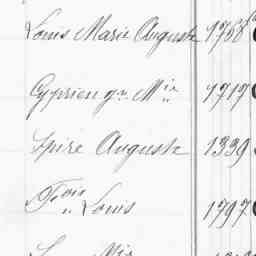 Louis Marie Auguste 1758
Cyprien gn Min 1717
Spire Auguste 1339
Fois " Louis 1797